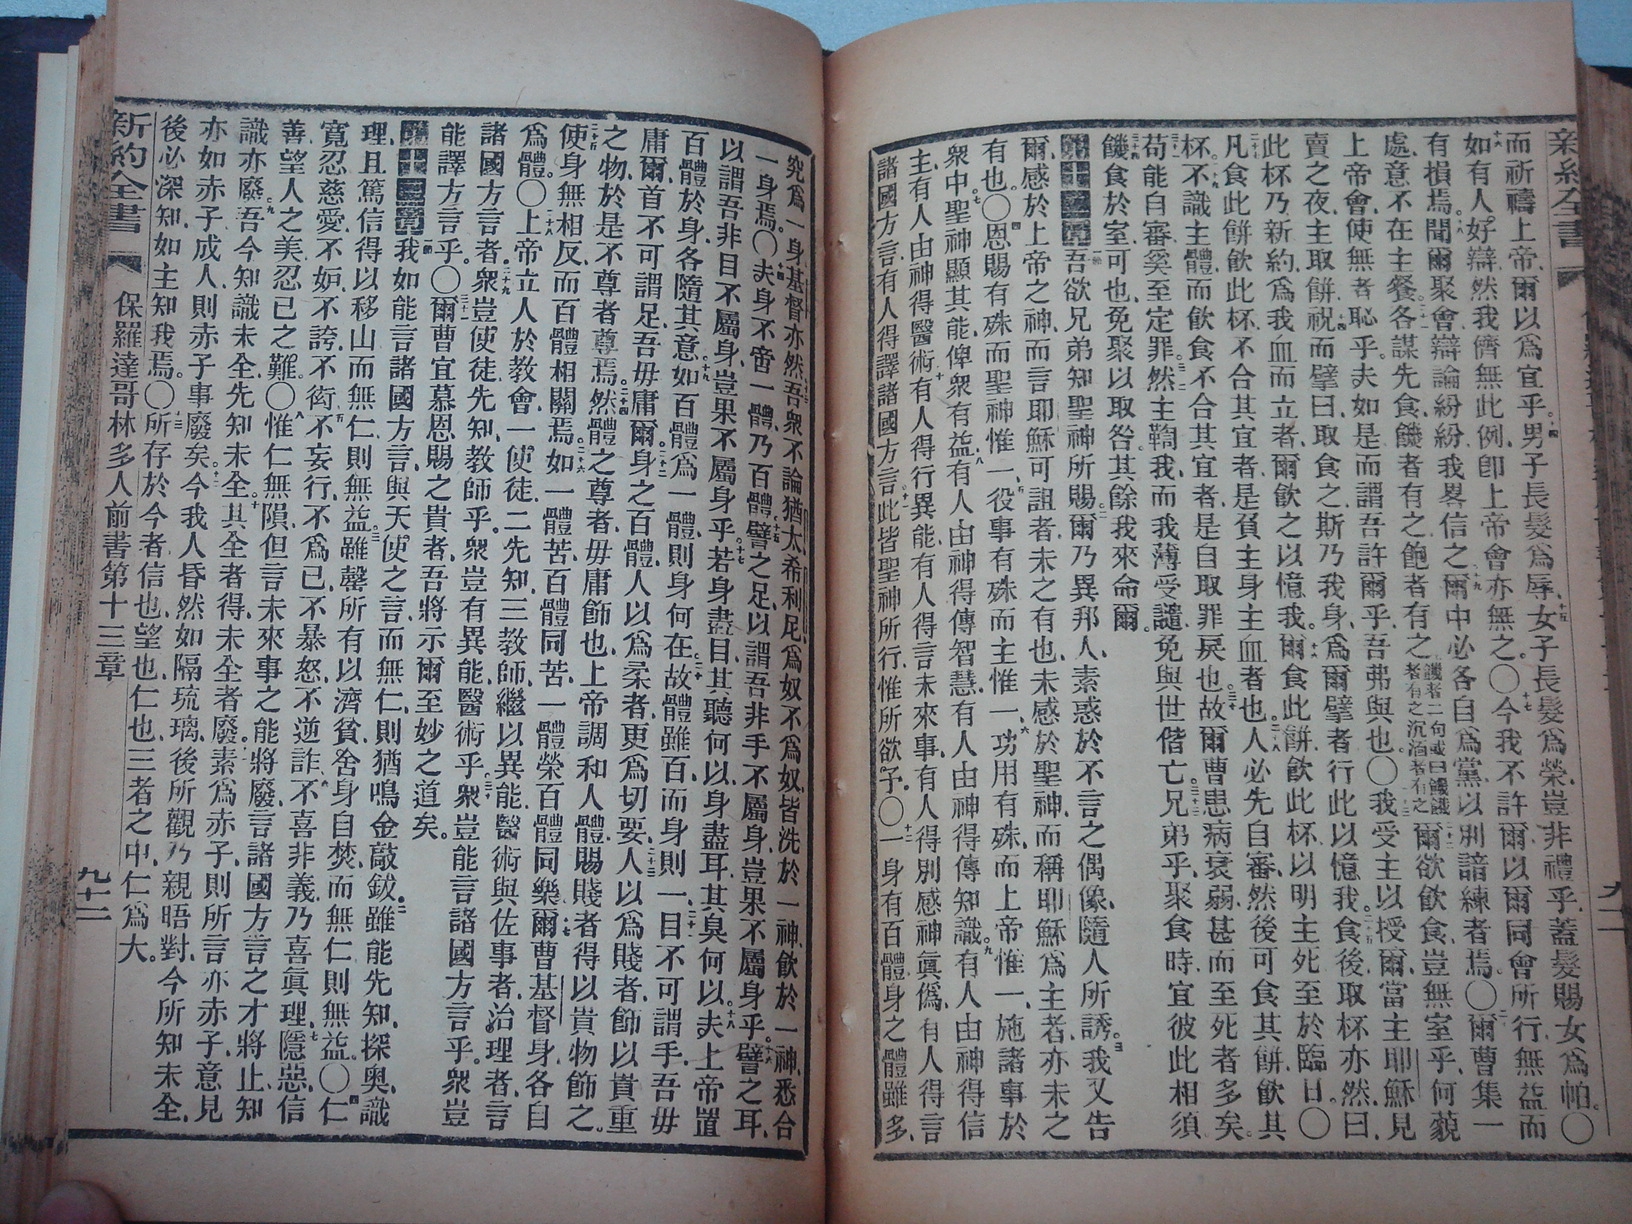 而祈禱上帝、爾以爲宜乎、男子長髮爲辱、女子長髮爲榮、豈非禮乎、蓋髮賜女爲帕。〇
如有人好辯、然我儕無此例、卽上帝會亦無之。〇今我不許爾、以爾同會所行、無益而
有損焉、聞爾聚會、辯論紛紛、我畧信之、爾中必各自爲黨、以別諳練者焉。〇爾曹集一
處、意不在主餐、各謀先食、饑者有之、飽者有之、饑者二句或曰饑餓者有之沉湎者有之爾欲飲食、豈無室乎、何藐
上帝會、使無者恥乎、夫如是而謂吾許爾乎、吾弗與也。〇我受主以授爾、當主耶穌見
賣之夜、主取餅、祝而擘曰、取食之、斯乃我身、爲爾擘者、行此以憶我、食後、取杯亦然、曰、
此杯乃新約、爲我血而立者、爾飲之以憶我、爾食此餅、飲此杯、以明主死、至於臨日。〇
凡食此餅、飲此杯、不合其宜者、是負主身主血者也、人必先自審、然後可食其餅、飲其
杯、不識主體、而飲食不合其宜者、是自取罪戾也、故爾曹患病衰弱、甚而至死者多矣、
苟能自審、奚至定罪、然主鞫我、而我薄受譴、免與世偕亡、兄弟乎、聚食時、宜彼此相須、
饑食於室可也、免聚以取咎、其餘我來命爾。
第十二章吾欲兄弟知聖神所賜、爾乃異邦人、素惑於不言之偶像、隨人所誘、我又告
爾、感於上帝之神、而言耶穌可詛者、未之有也、未感於聖神、而稱耶穌爲主者、亦未之
有也。〇恩賜有殊、而聖神惟一、役事有殊、而主惟一、功用有殊、而上帝惟一、施諸事於
衆中、聖神顯其能、俾衆有益、有人由神得傳智慧、有人由神得傳知識、有人由神得信
主、有人由神得醫術、有人得行異能、有人得言未來事、有人得別感神眞僞、有人得言
諸國方言、有人得譯諸國方言、此皆聖神所行、惟所欲予。〇一身有百體、身之體雖多、
究爲一身、基督亦然、吾衆不論猶太希利尼、爲奴不爲奴、皆洗於一神、飲於一神、悉合
一身焉。〇夫身不啻一體、乃百體、譬之足、以謂吾非手、不屬身、豈果不屬身乎、譬之耳、
以謂吾非目、不屬身、豈果不屬身乎、若身盡目、其聽何以、身盡耳、其臭何以、夫上帝置
百體於身、各隨其意、如百體爲一體、則身何在、故體雖百、而身則一、目不可謂手、吾毋
庸爾、首不可謂足、吾毋庸爾、身之百體、人以爲柔者、更爲切要、人以爲賤者、飾以貴重
之物、於是不尊者尊焉、然體之尊者、毋庸飾也、上帝調和人體、賜賤者得以貴物飾之、
使身無相反、而百體相關焉、如一體苦、百體同苦、一體榮、百體同樂、爾曹基督身、各自
爲體。〇上帝立人於教會、一使徒、二先知、三教師、繼以異能、醫術、與佐事者、治理者、言
諸國方言者、衆豈使徒、先知、教師乎、衆豈有異能、醫術乎、衆豈能言諸國方言乎、衆豈
能譯方言乎。〇爾曹宜慕恩賜之貴者、吾將示爾至妙之道矣。
第十三章我如能言諸國方言、與天使之言、而無仁、則猶鳴金敲鈸、雖能先知、探奥、識
理、且篤信得以移山、而無仁、則無益、雖罄所有以濟貧、舍身自焚、而無仁、則無益。〇仁
寬忍慈愛、不妒、不誇、不衒、不妄行、不爲己、不暴怒、不逆詐、不喜非義、乃喜眞理、隱惡、信
善、望人之美、忍己之難。〇惟仁無隕、但言未來事之能將廢、言諸國方言之才將止、知
識亦廢、吾今知識未全、先知未全、其全者得、未全者廢、素爲赤子、則所言亦赤子、意見
亦如赤子、成人則赤子事廢矣、今我人昏然如隔琉璃、後所觀、乃親晤對、今所知未全、
後必深知、如主知我焉。〇所存於今者、信也、望也、仁也、三者之中、仁爲大。
新約全書 保羅達哥林多人前書第十三章 九十二